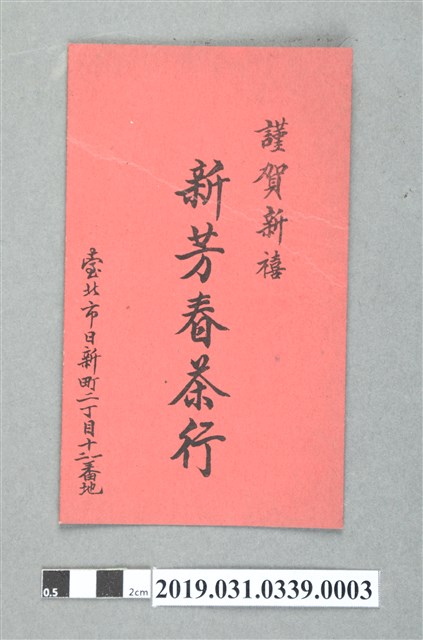 謹賀新禧
新芳春茶行
臺北市日新町二丁目十二番地
0.5 2cm
2019.031.0339.0003